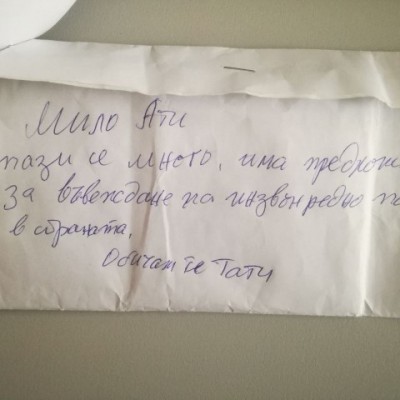 Мило Ати
пази се много, има предложе
за въвеждане на инзвънредно по
в страната.
Обичам те Тати